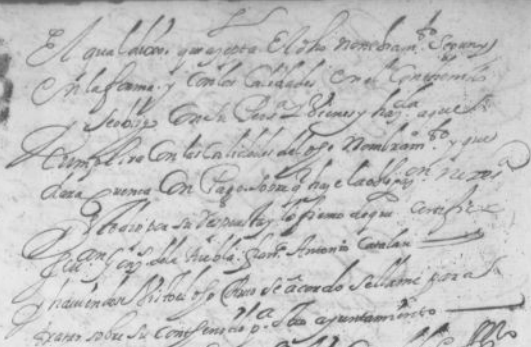 El qual dixo que azepta El dho nombram.to Segun y
En la forma y con las Calidades en el Contenidas
y se obligo Con su Perss.a y Vienes y haz.da a que
Cumplira Con las Calidades del dho Nombram.to y que
dara Cuenta Con Pago sobre q haze la oblig.on nezes.a
y esto dio por su Respuesta y lo firmo de que Certifico
de la Puebla Fran.co Antonio Catalan
y haviendose Visto el dho se acordo se llame para
tratar sobre su Contenido p.a ayuntamiento